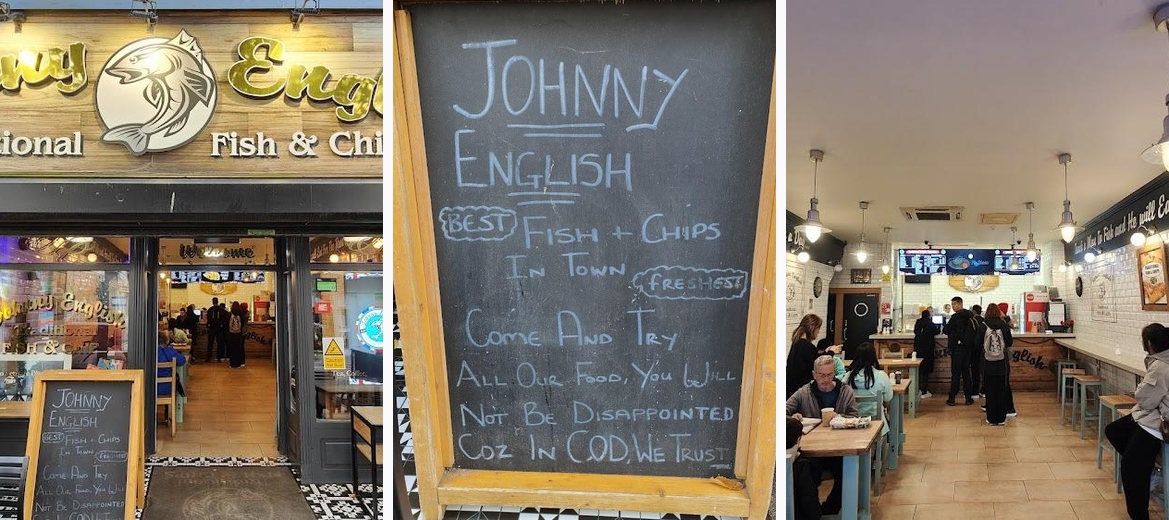 Eng
tional
Fish & Chi
Welcome
Johnny English
Traditional
FISH & CHIPS
JOHNNY
ENGLISH
BEST FISH + CHIPS
IN TOWN
COME AND TRY
ALL OUR FOOD, YOU WILL
NOT BE DISAPPOINTED
JOHNNY
ENGLISH
BEST FISH + CHIPS
IN TOWN FRESHEST
COME AND TRY
ALL OUR FOOD, YOU WILL
NOT BE DISAPPOINTED
COZ IN COD, WE TRUST
Man to Fish and He will Ea
English